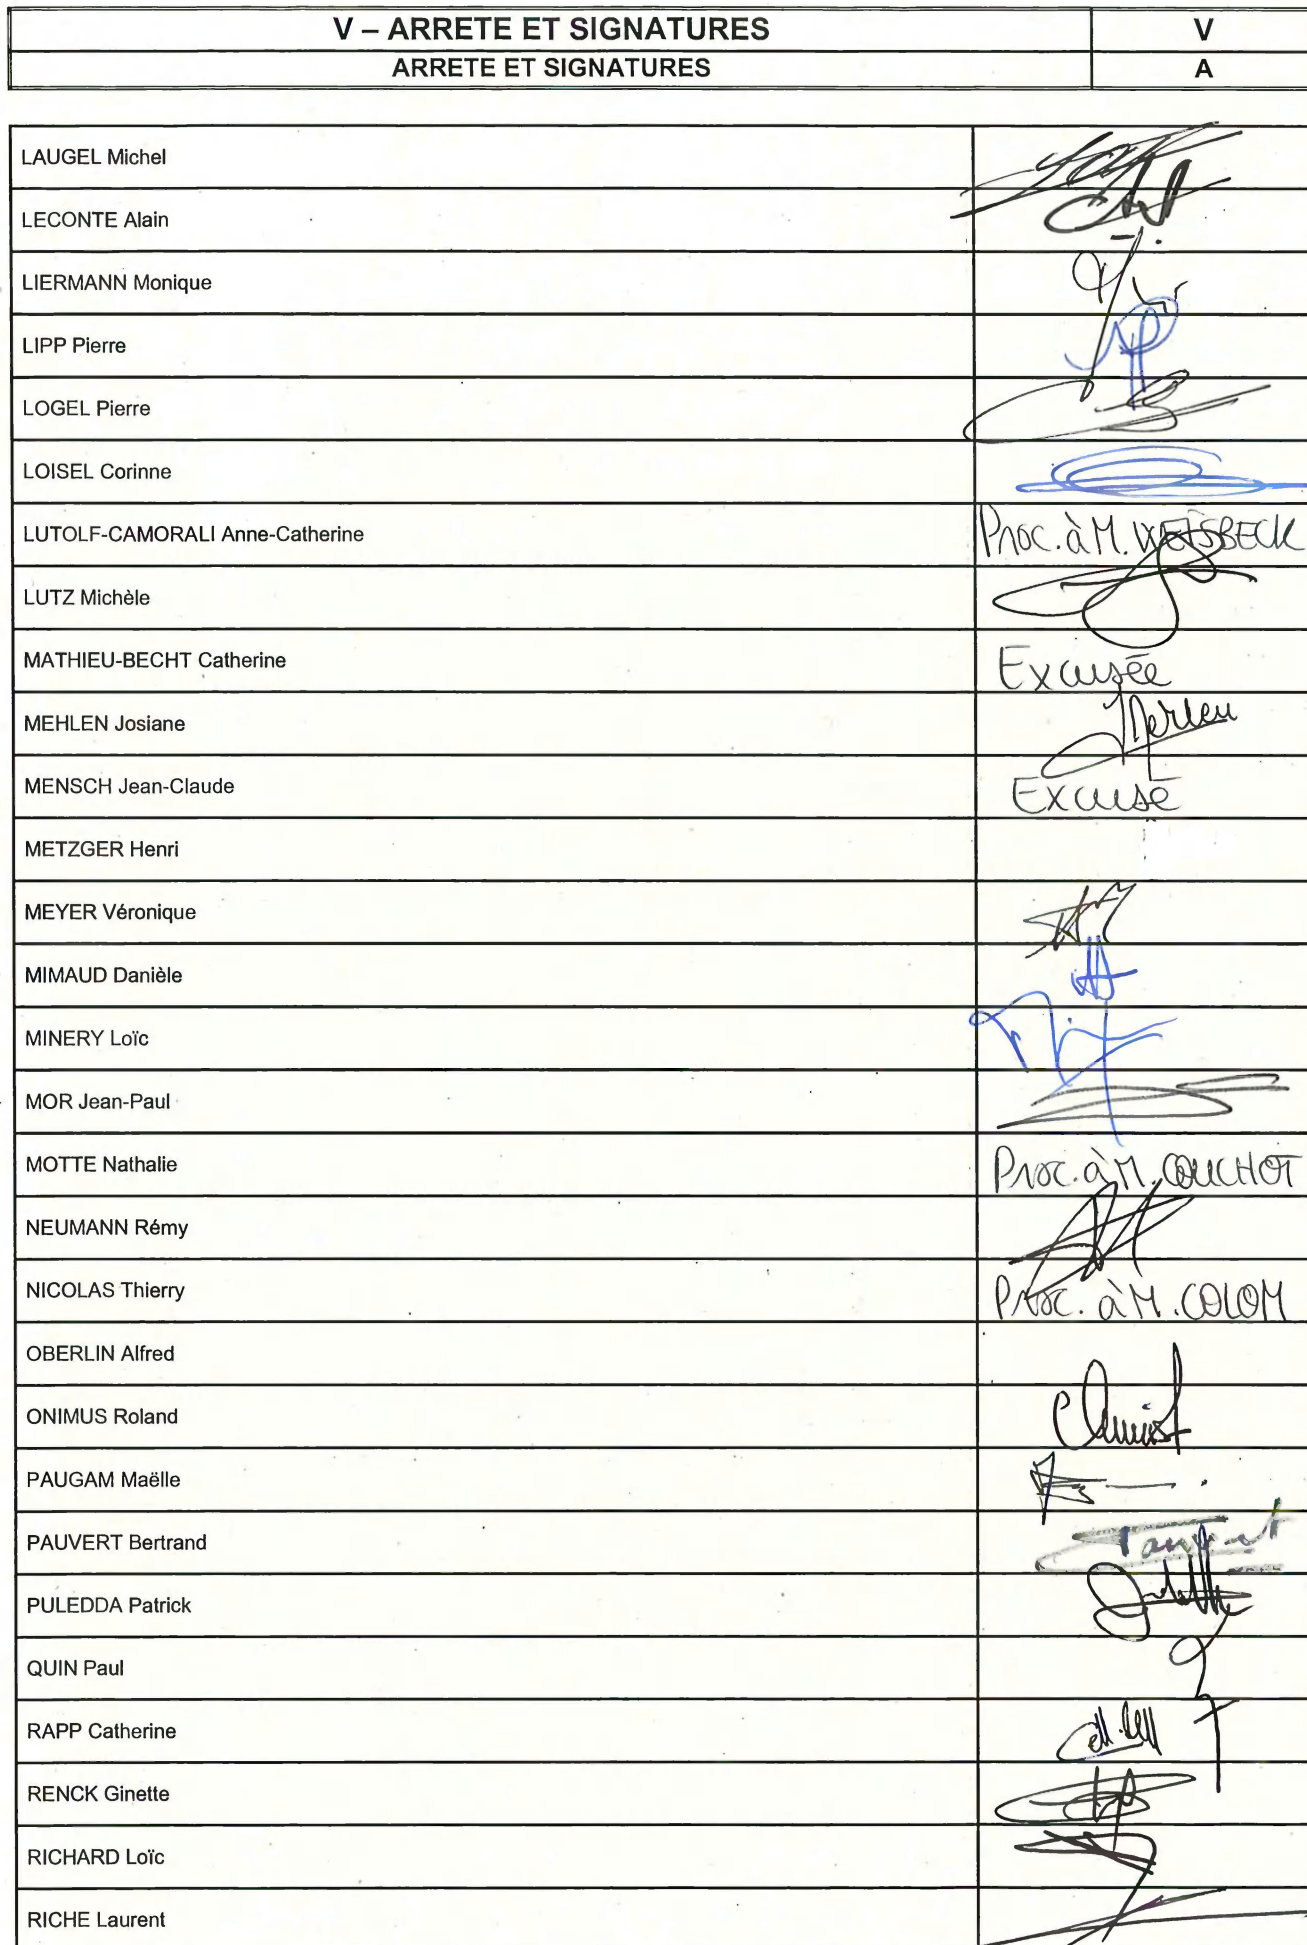 V – ARRETE ET SIGNATURES V
ARRETE ET SIGNATURES A
LAUGEL Michel
LECONTE Alain
LIERMANN Monique
LIPP Pierre
LOGEL Pierre
LOISEL Corinne
LUTOLF-CAMORALI Anne-Catherine Proc. à M. WEISBECK
LUTZ Michèle
MATHIEU-BECHT Catherine Excusée
MEHLEN Josiane
MENSCH Jean-Claude Excusé
METZGER Henri
MEYER Véronique
MIMAUD Danièle
MINERY Loïc
MOR Jean-Paul
MOTTE Nathalie Proc. à M. COUCHOT
NEUMANN Rémy
NICOLAS Thierry Proc. à M. COLOM
OBERLIN Alfred
ONIMUS Roland
PAUGAM Maëlle
PAUVERT Bertrand
PULEDDA Patrick
QUIN Paul
RAPP Catherine
RENCK Ginette
RICHARD Loïc
RICHE Laurent